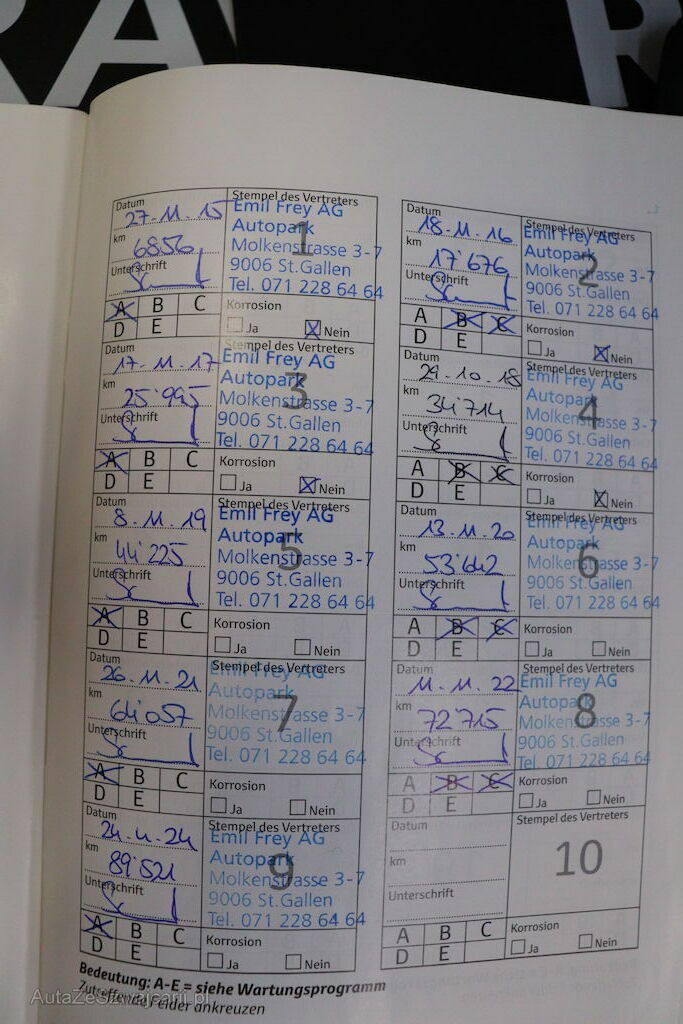 RA
R
Datum
27.11.15
km
6856
Unterschrift
Stempel des Vertreters
Emil Frey AG
Autopark
Molkenstrasse 3-7
9006 St.Gallen
Tel. 071 228 64 64
1
A B C
D E
Korrosion
Ja Nein
Datum
18.11.16
km
17'676
Unterschrift
Stempel des Vertreters
Emil Frey AG
Autopark
Molkenstrasse 3-7
9006 St.Gallen
Tel. 071 228 64 64
2
A B C
D E
Korrosion
Ja Nein
Datum
17.11.17
km
25'995
Unterschrift
Stempel des Vertreters
Emil Frey AG
Autopark
Molkenstrasse 3-7
9006 St.Gallen
Tel. 071 228 64 64
3
A B C
D E
Korrosion
Ja Nein
Datum
29.10.18
km
34'714
Unterschrift
Stempel des Vertreters
Emil Frey AG
Autopark
Molkenstrasse 3-7
9006 St.Gallen
Tel. 071 228 64 64
4
A B C
D E
Korrosion
Ja Nein
Datum
8.11.19
km
44'225
Unterschrift
Stempel des Vertreters
Emil Frey AG
Autopark
Molkenstrasse 3-7
9006 St.Gallen
Tel. 071 228 64 64
5
A B C
D E
Korrosion
Ja Nein
Datum
13.11.20
km
53'642
Unterschrift
Stempel des Vertreters
Emil Frey AG
Autopark
Molkenstrasse 3-7
9006 St.Gallen
Tel. 071 228 64 64
6
A B C
D E
Korrosion
Ja Nein
Datum
26.11.21
km
64'057
Unterschrift
Stempel des Vertreters
Emil Frey AG
Autopark
Molkenstrasse 3-7
9006 St.Gallen
Tel. 071 228 64 64
7
A B C
D E
Korrosion
Ja Nein
Datum
11.11.22
km
72'715
Unterschrift
Stempel des Vertreters
Emil Frey AG
Autopark
Molkenstrasse 3-7
9006 St.Gallen
Tel. 071 228 64 64
8
A B C
D E
Korrosion
Ja Nein
Datum
24.4.24
km
89'521
Unterschrift
Stempel des Vertreters
Emil Frey AG
Autopark
Molkenstrasse 3-7
9006 St.Gallen
Tel. 071 228 64 64
9
A B C
D E
Korrosion
Ja Nein
Datum
km
Unterschrift
Stempel des Vertreters
10
A B C
D E
Korrosion
Ja Nein
Bedeutung: A-E = siehe Wartungsprogramm
Zutreffende Felder ankreuzen
AutaZeSzwajcarii.pl